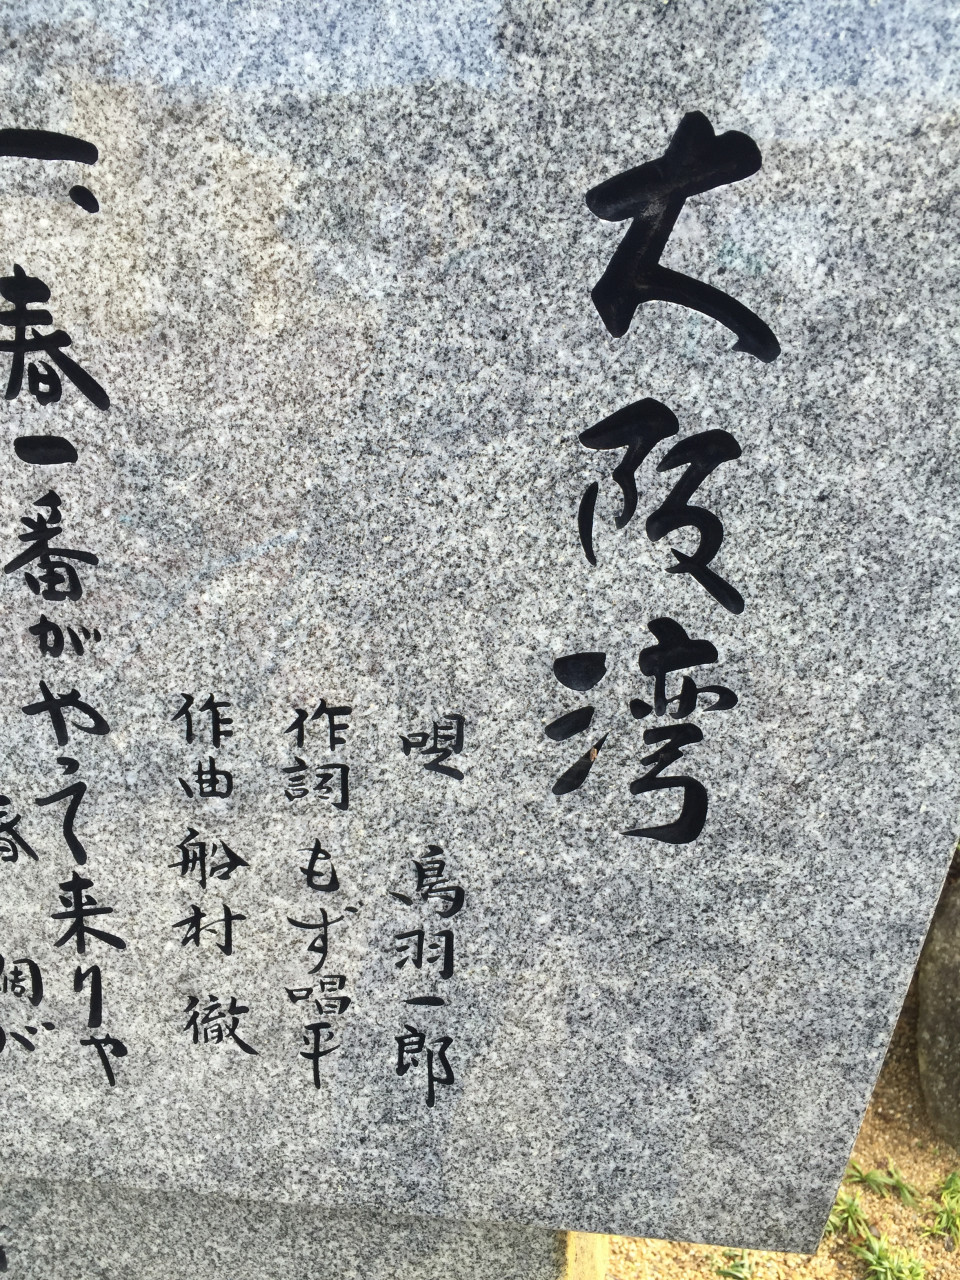 大阪湾
唄 鳥羽一郎
作詞 もず唱平
作曲 船村 徹
一、春一番がやって来りゃ